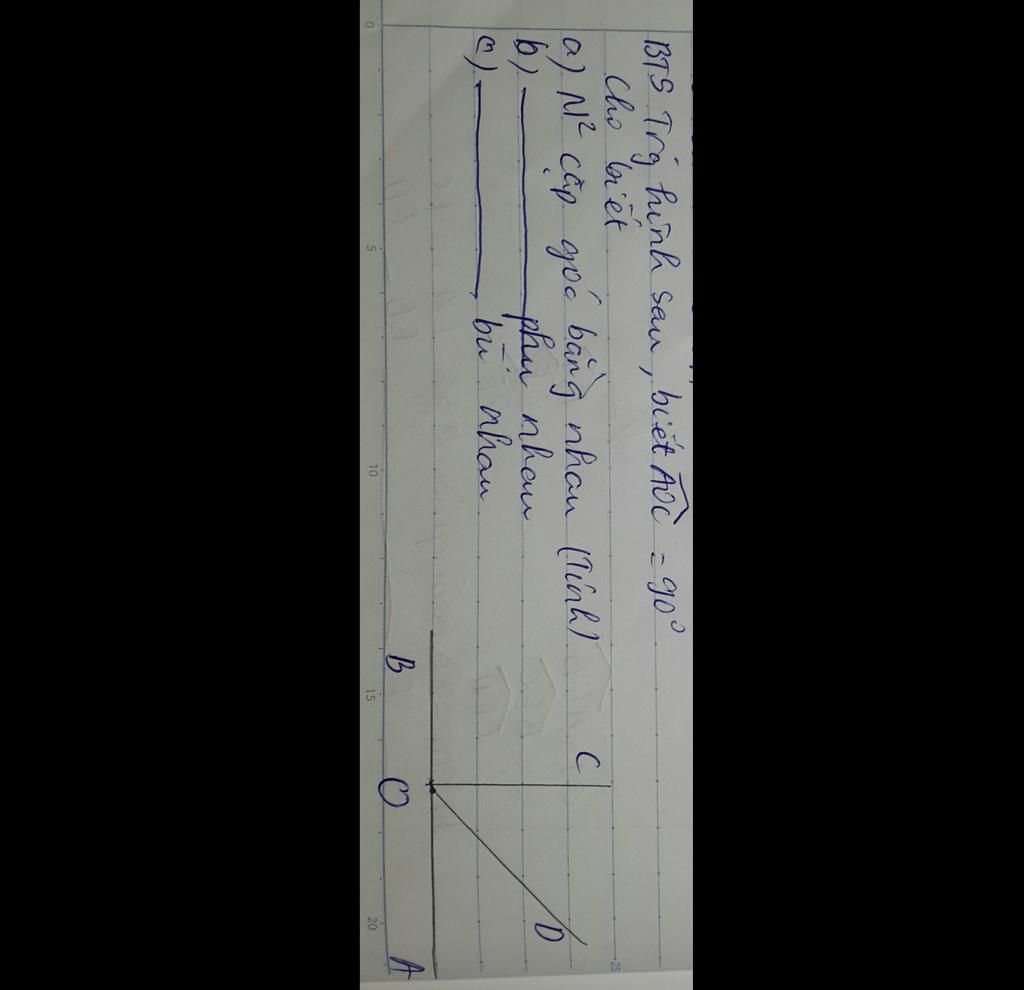 BT5 Trg hình sau, biết AOC = 90°
Cho biết
a) N² cặp góc bằng nhau (Tính)
b) ——— phụ nhau
c) ——— bù nhau
C
D
B O A
0 5 10 15 20
25